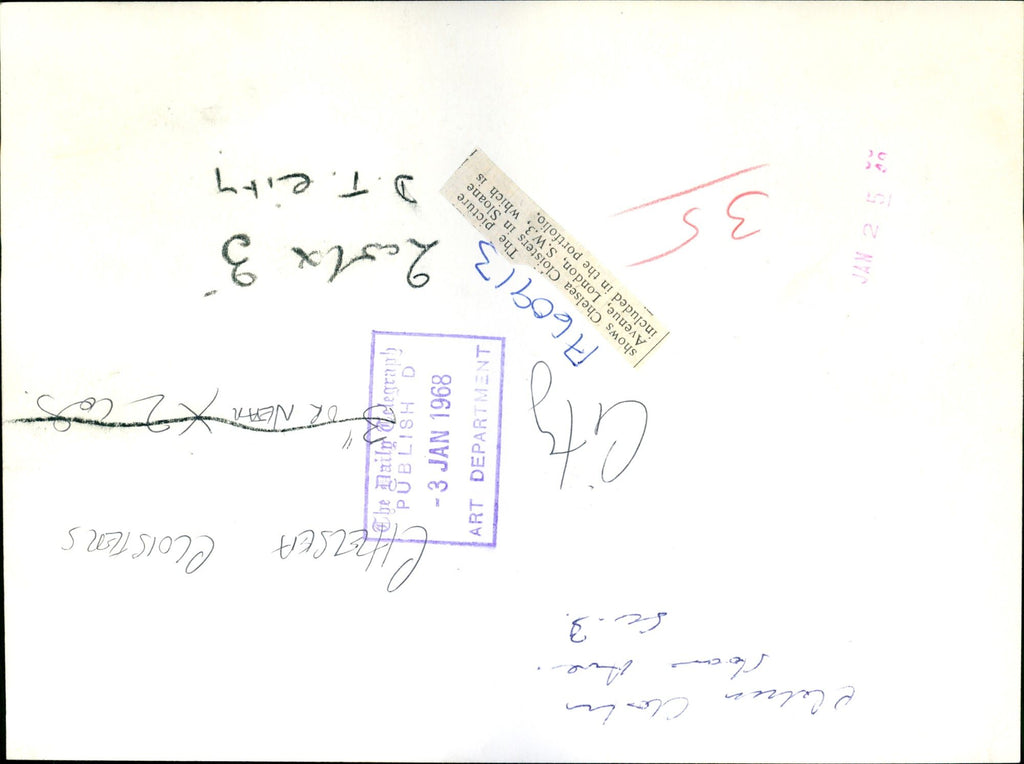 D.T. City
2 cols x 3"
The picture
shows Chelsea Cloisters in Sloane
Avenue, London, S.W.3, which is
included in the portfolio.
A609113
35
JAN 25
The Daily Telegraph
PUBLISHED
- 3 JAN 1968
ART DEPARTMENT
City
3" OR NEAR X 2 COLS.
CHELSEA CLOISTERS
Chelsea Cloisters
Sloane Ave.